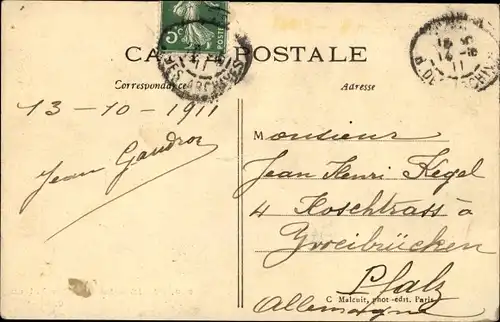 CA POSTALE
5c
POSTES
Correspondance
Adresse
13-10-1911
Jean Gaudron
Monsieur
Jean Henri Kegel
4 Koschtrass à
Zweibrücken
Pfalz
C Malcuit, phot-édit. Paris
Allemagne